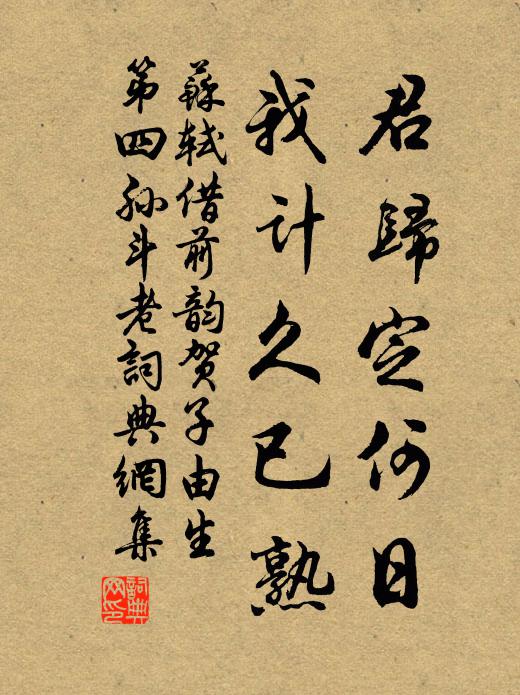 君歸定何日
我計久已熟
蘇軾借前韵贺子由生
第四孙斗老詞典網集
詞典
网印